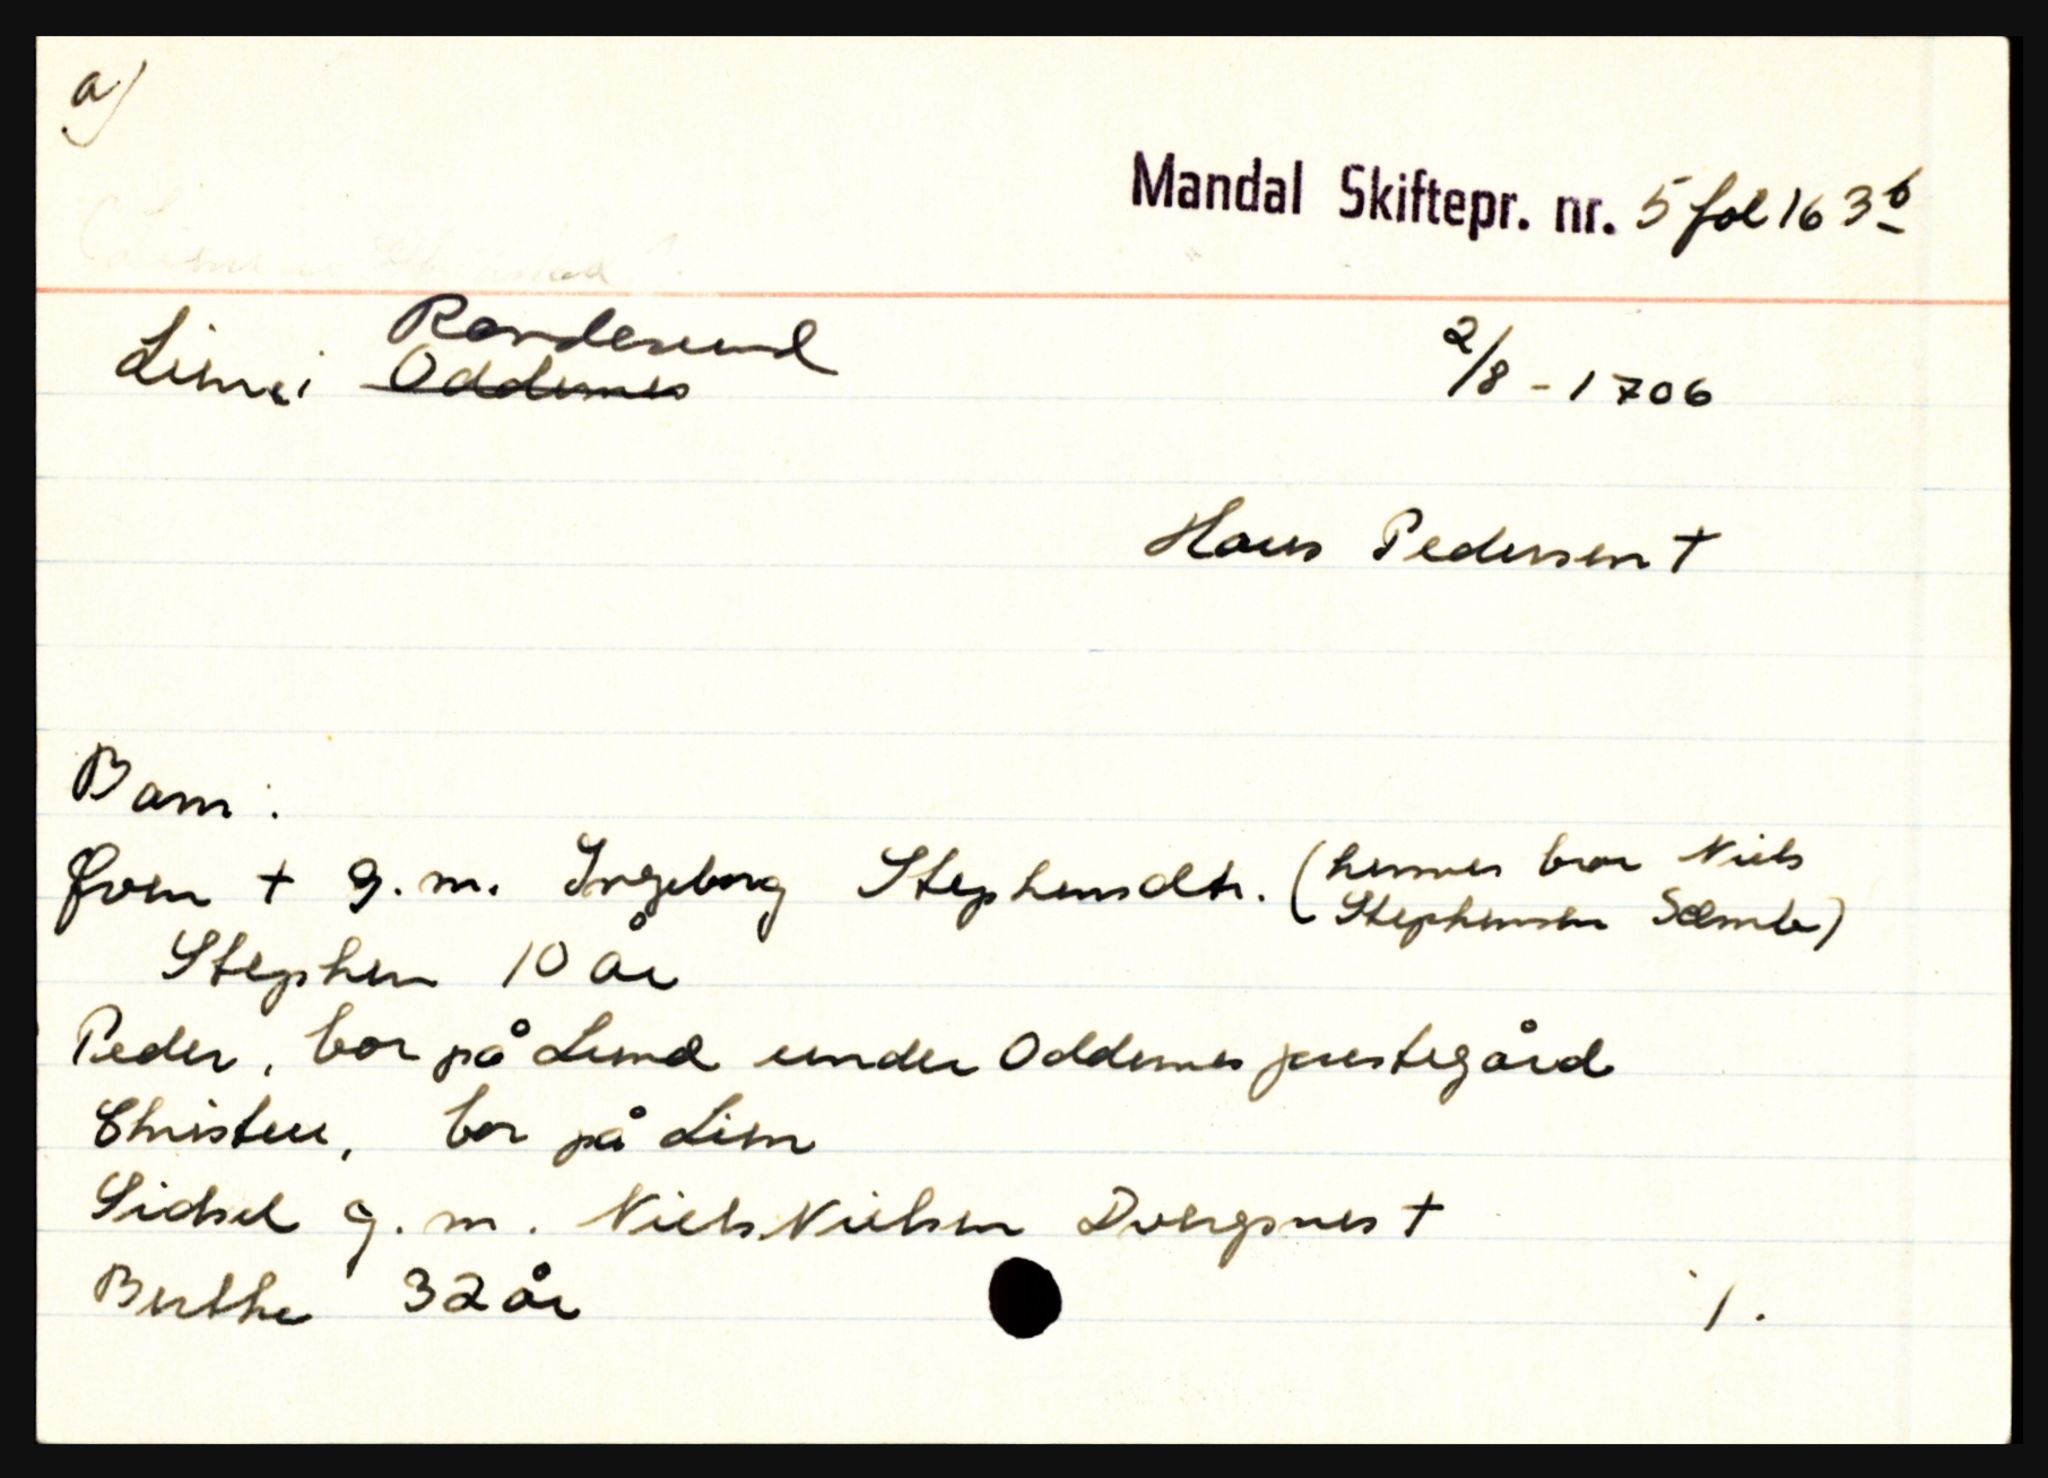 a)
Mandal Skiftepr. nr. 5 fol 163b
Randesund
Lien i Oddernes 2/8 - 1706
Hans Pedersen †
Barn:
Even † g.m. Ingeborg Stephensdtr. (hennes bror Niels
Stephensen Sæmb)
Stephen 10 år
Peder, bor på Lund under Oddernes prestegård
Christen, bor på Lien
Sidsel g.m. Niels Nielsen Dvergsnes †
Berthe 32 år
1.